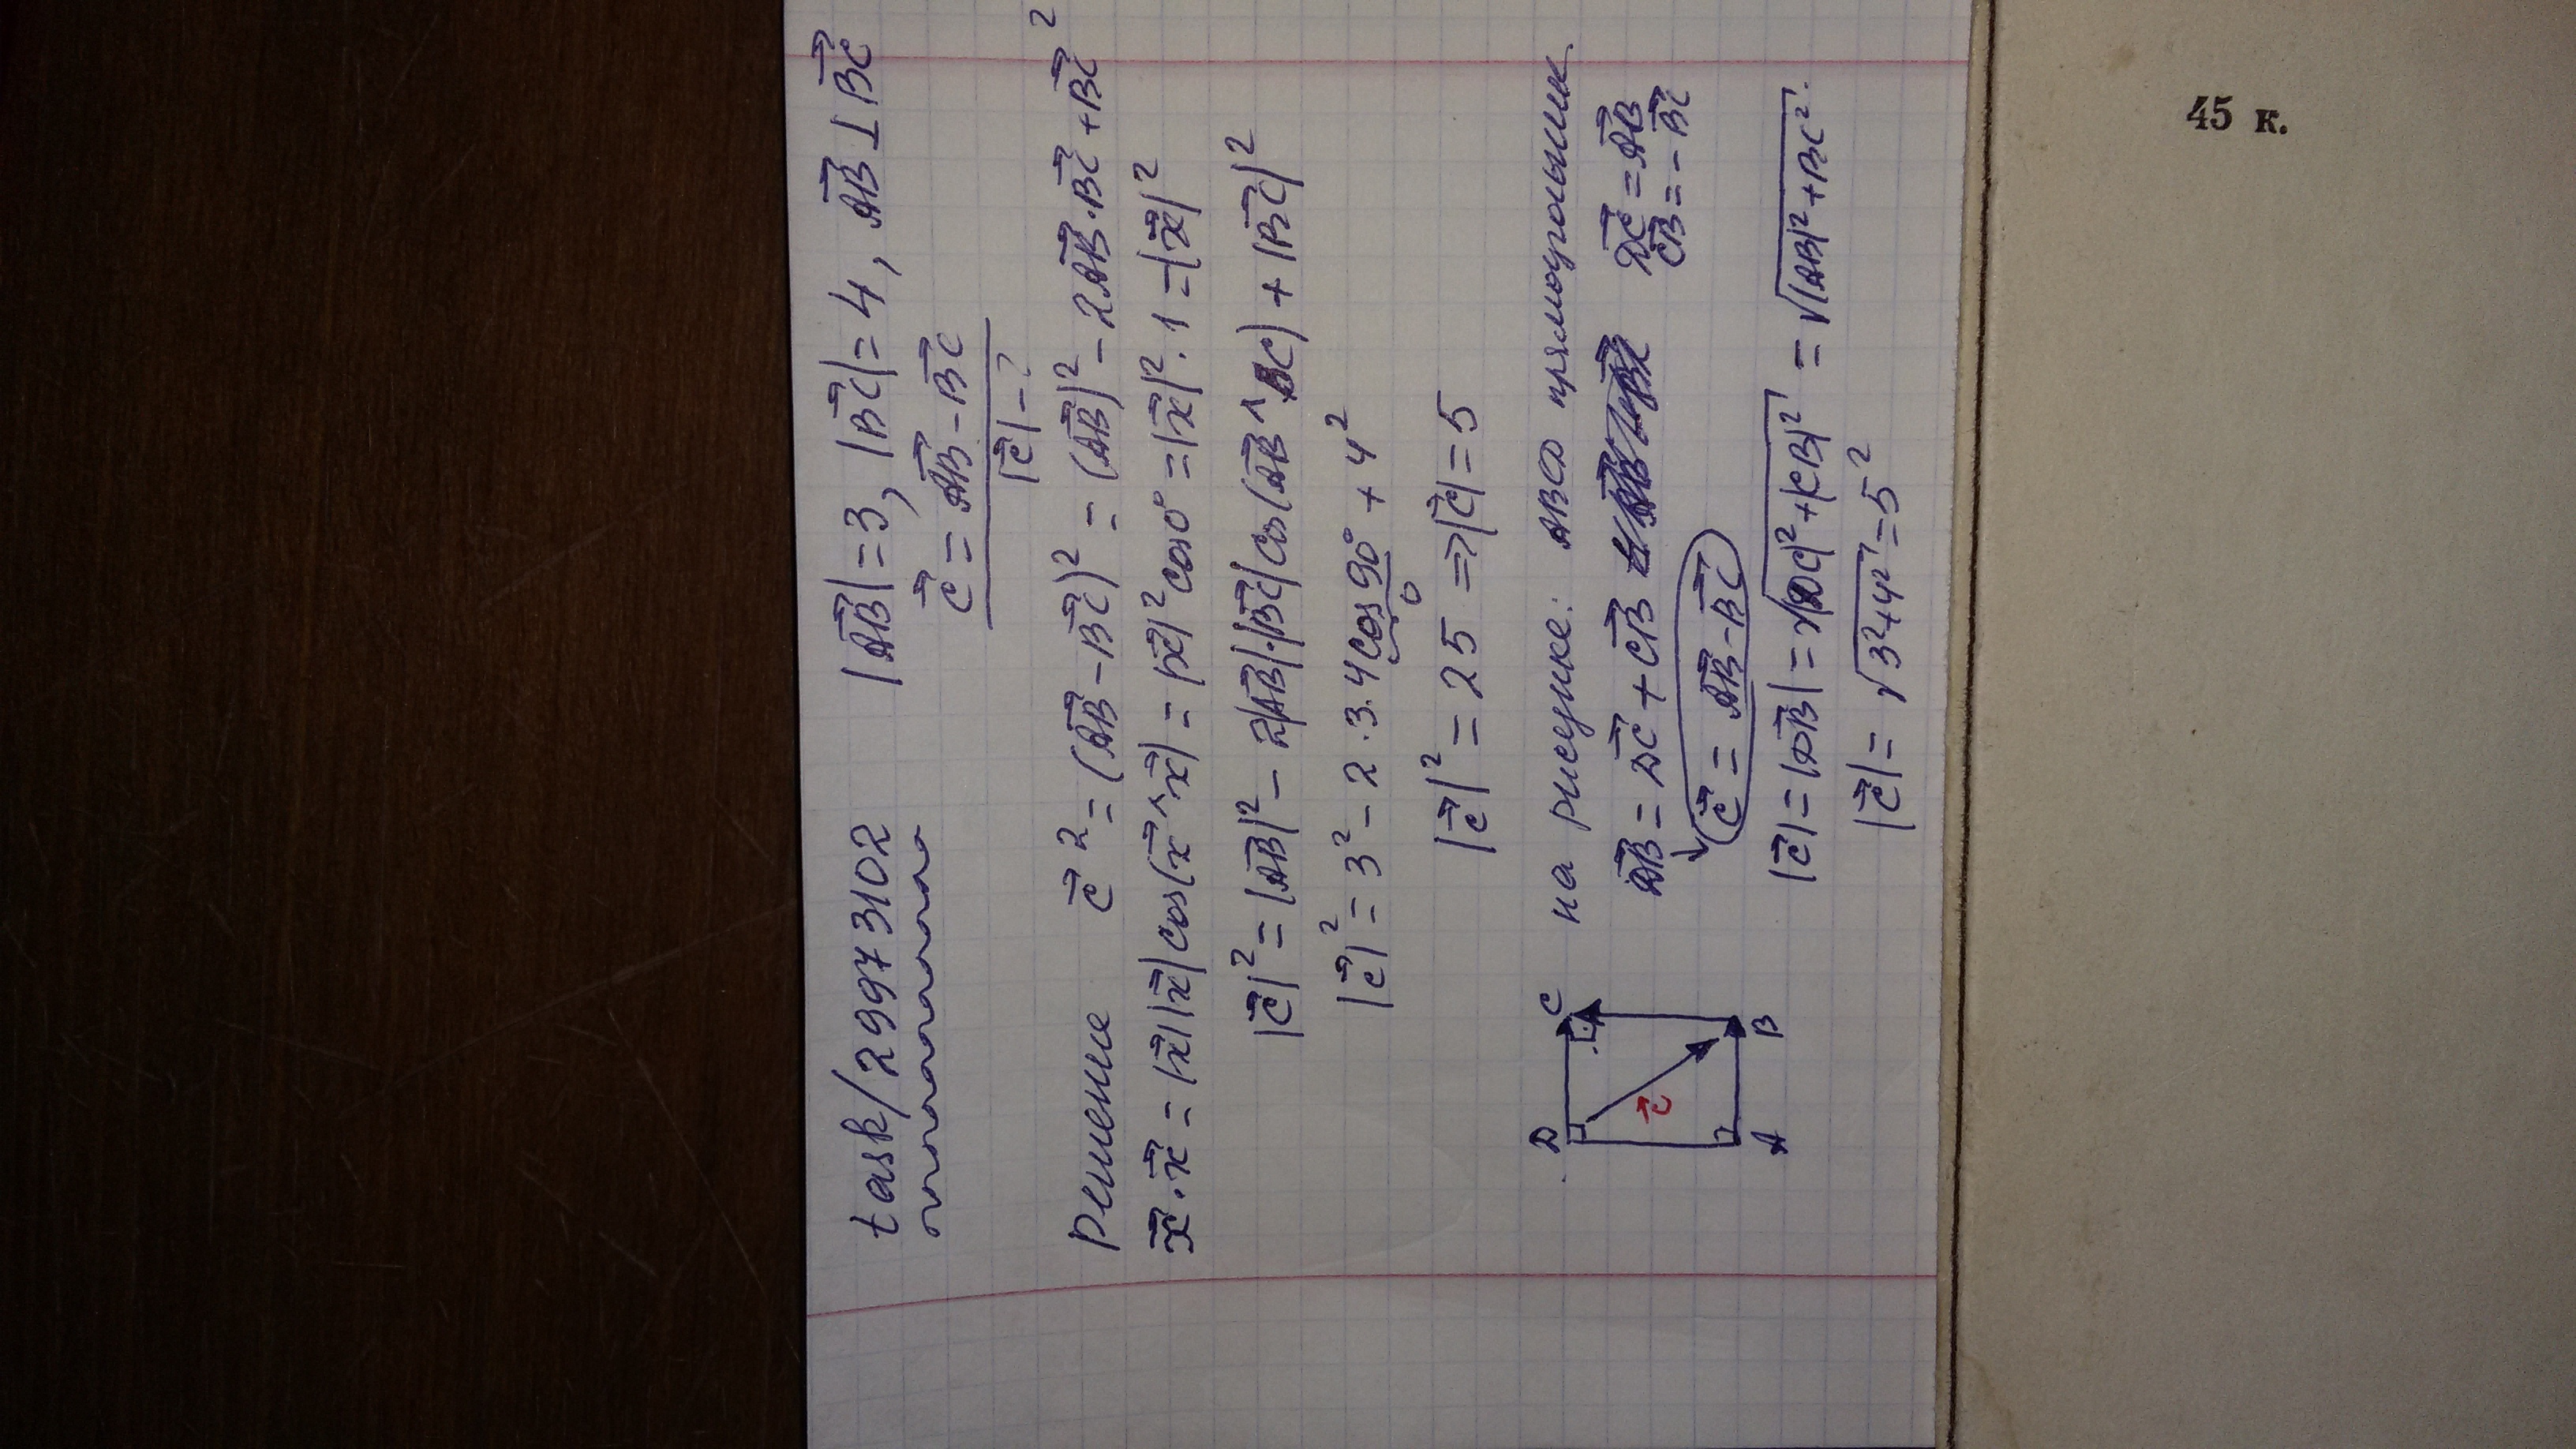 task/29973102 |AB⃗|=3, |BC⃗|=4, AB⃗⊥BC⃗
c⃗ = AB⃗ - BC⃗
|c⃗| - ?
Решение c⃗² = (AB⃗ - BC⃗)² = (AB⃗)² - 2AB⃗·BC⃗ + BC⃗²
x⃗·x⃗ = |x⃗||x⃗|cos(x⃗^x⃗) = |x⃗|²cos0° = |x⃗|²·1 = |x⃗|²
|c⃗|² = |AB⃗|² - 2|AB⃗|·|BC⃗|cos(AB⃗^BC) + |BC⃗|²
|c⃗|² = 3² - 2·3·4cos90° + 4²
0
|c⃗|² = 25 => |c⃗| = 5
D C на рисунке: ABCD прямоугольник
DB⃗ = DC⃗ + CB⃗ DC⃗ = AB⃗
CB⃗ = - BC⃗
c⃗
c⃗ = AB⃗ - BC⃗
A B
|c⃗| = |DB⃗| = √|DC|²+|CB|² = √|AB|²+BC².
|c⃗| = √3²+4² = 5²
45 к.